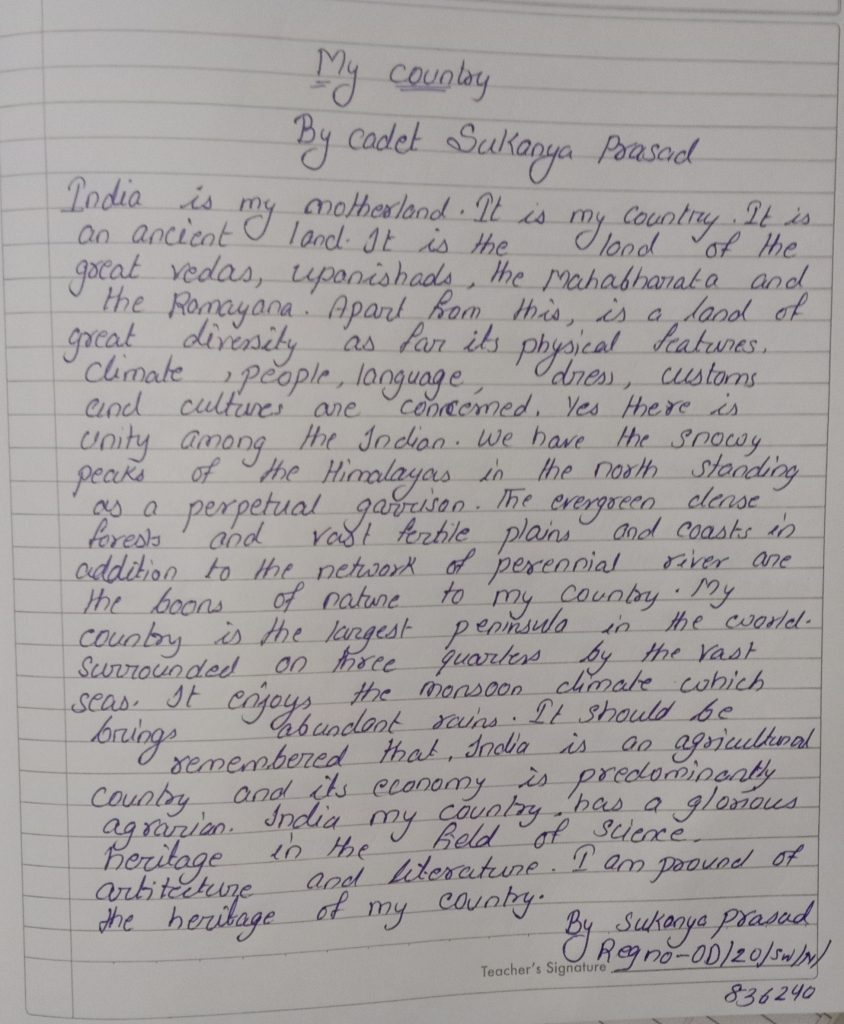 My country
By cadet Sukanya Prasad
India is my motherland. It is my country. It is
an ancient land. It is the land of the
great vedas, upanishads, the Mahabharata and
the Ramayana. Apart from this, is a land of
great diversity as far its physical features.
climate, people, language, dress, customs
and cultures are concerned. Yes there is
unity among the Indian. We have the snowy
peaks of the Himalayas in the north standing
as a perpetual garrison. The evergreen dense
forests and vast fertile plains and coasts in
addition to the network of perennial river are
the boons of nature to my country. My
country is the largest peninsula in the world.
surrounded on three quarters by the vast
seas. It enjoys the monsoon climate which
brings abundant rains. It should be
remembered that, India is an agricultural
country and its economy is predominantly
agrarian. India my country, has a glorious
heritage in the field of science.
artitecture and literature. I am pround of
the heritage of my country.
By Sukanya Prasad
Teacher's Signature Reg no-OD/20/SW/N/
836240